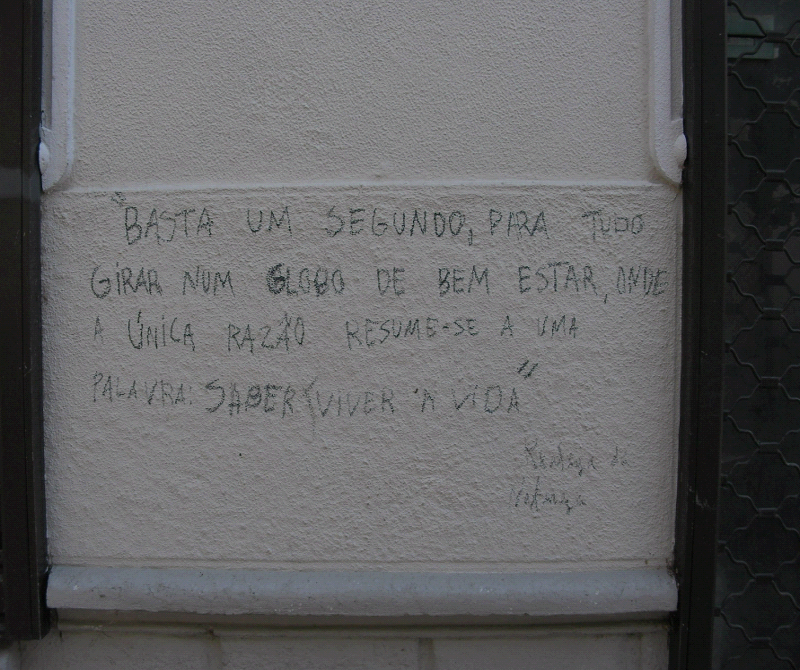 "BASTA UM SEGUNDO, PARA TUDO
GIRAR NUM GLOBO DE BEM ESTAR, ONDE
A ÚNICA RAZÃO RESUME-SE A UMA
PALAVRA: SABER VIVER A VIDA"